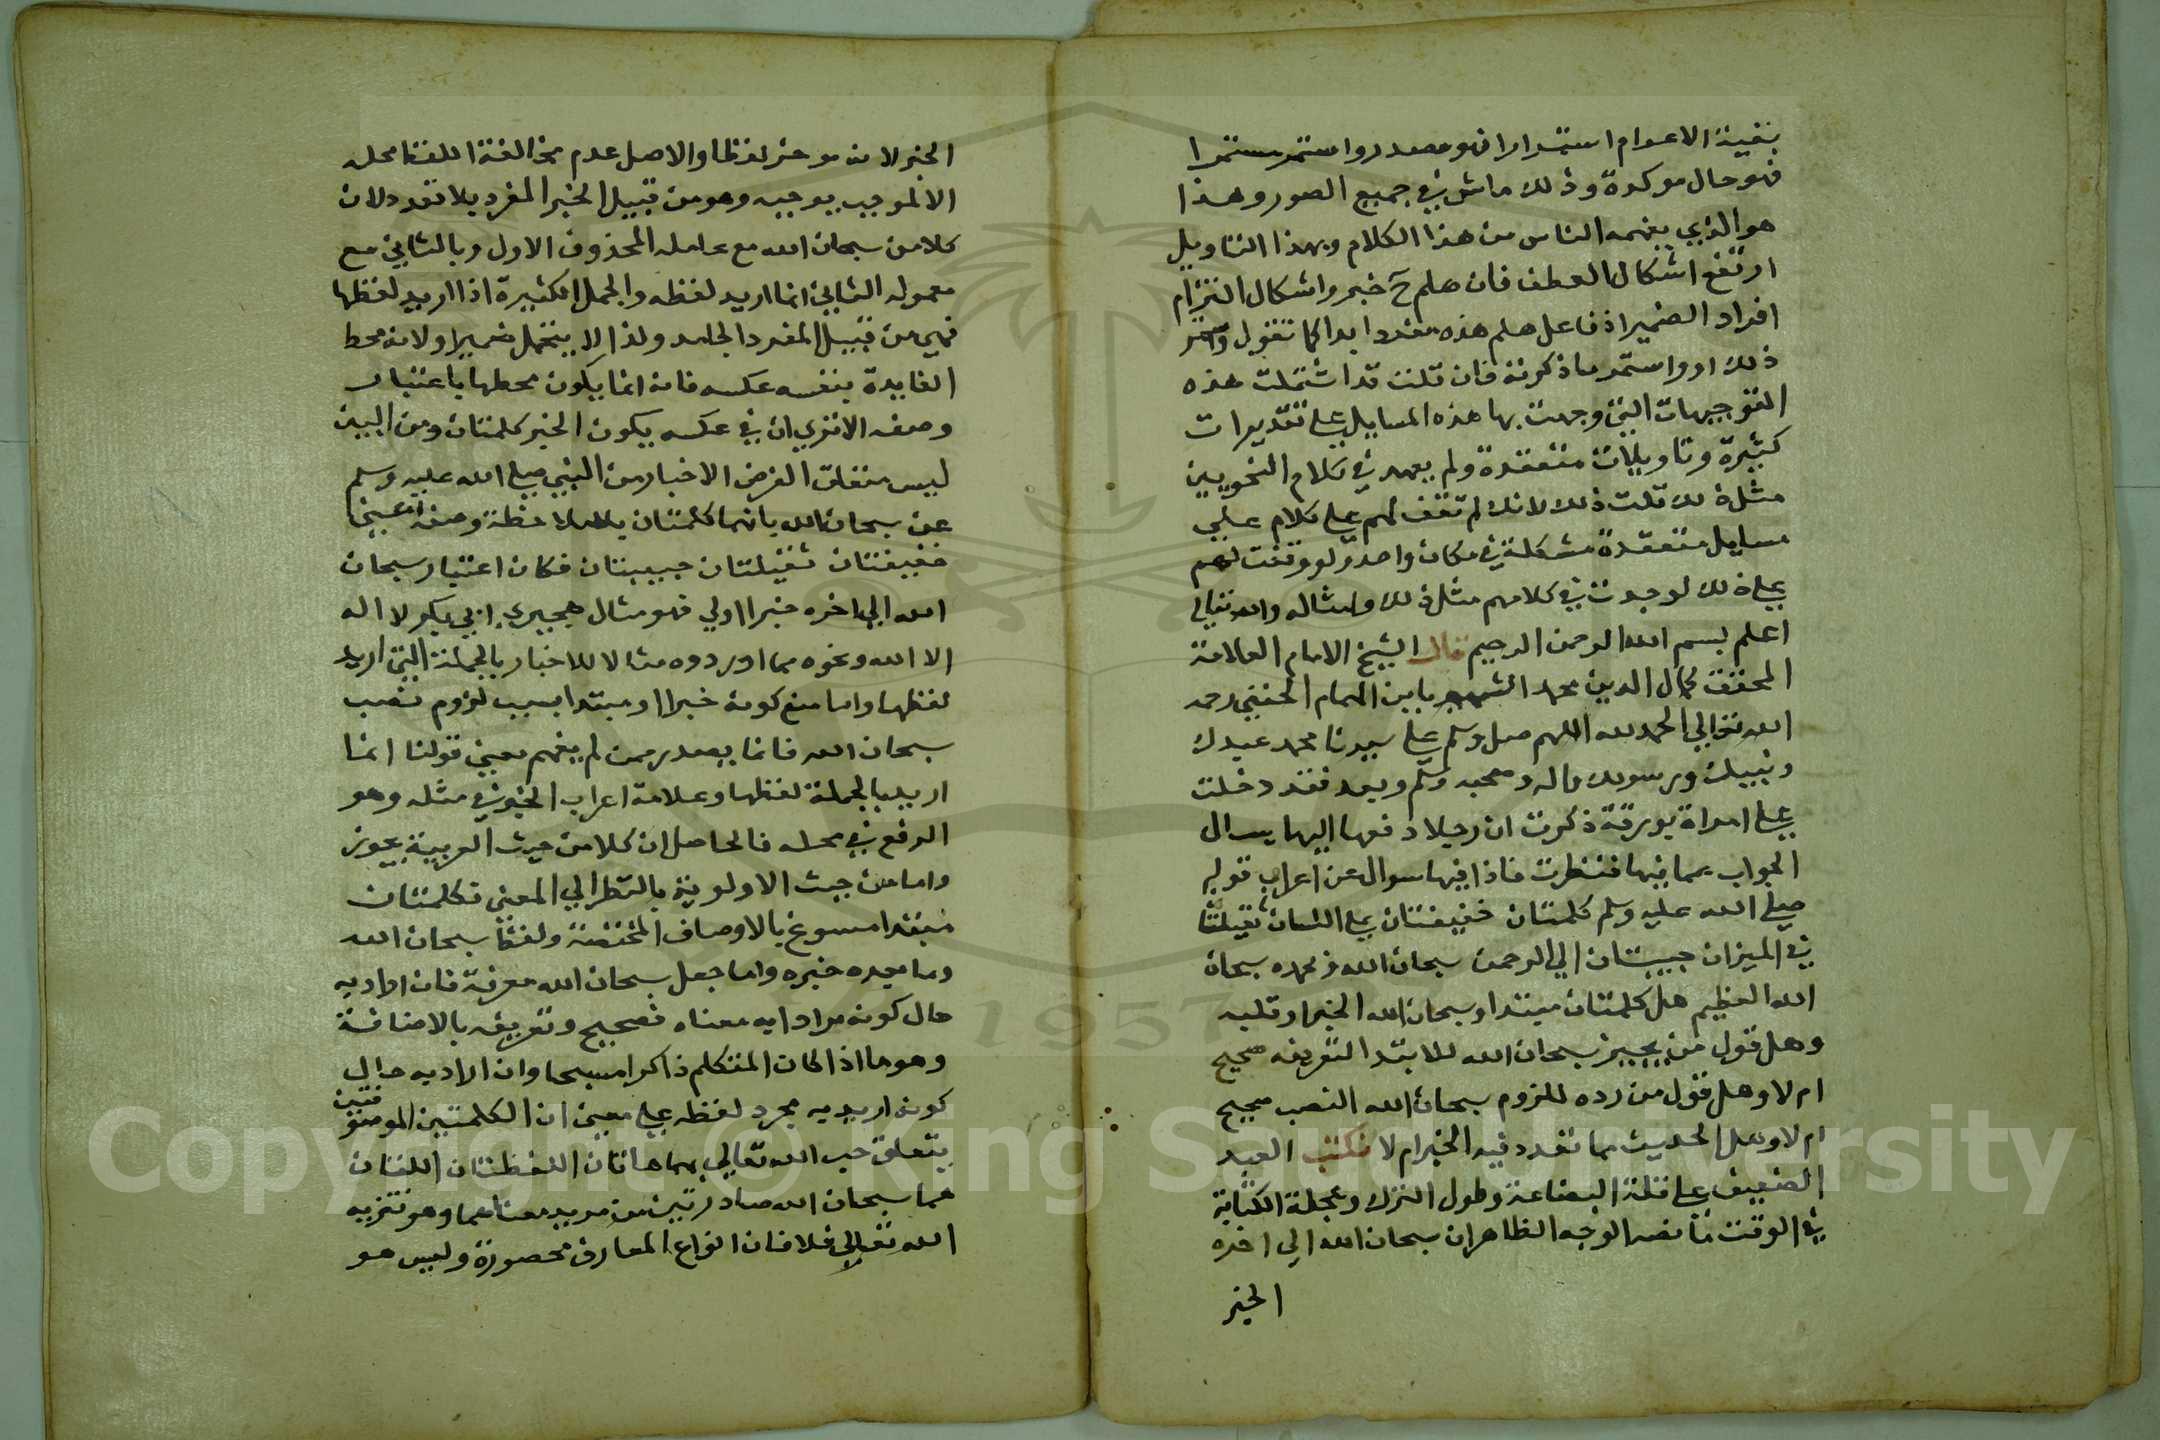 بقية الاعوام استمرارا فهو مصدر واستمر مستمرا
فهو حال موكدة وذلك ماش في جميع الصور وهذا
هو الذي يفهمه الناس من هذا الكلام وبهذا التاويل
ارتفع اشكال العطف فان هلم ح خبر واشكال التزام
افراد الضمير اذ فاعل هلم هذه مفرد ابدا كما تقول واستمر
ذلك او واستمر ما ذكرته فان قلت قد اشتملت هذه
التوجيهات التي وجهت بها هذه المسايل على تقديرات
كثيرة وتاويلات متعقدة ولم يعهد في كلام النحويين
مثل ذلك قلت ذلك لانك لم تقف لهم على كلام على
مسايل متعقدة مشكلة في مكان واحد ولو وقفت لهم
على ذلك لوجدت في كلامهم مثل ذلك وامثاله والله تعالى
اعلم بسم الله الرحمن الرحيم قال الشيخ الامام العلامة
المحقق كمال الدين محمد الشهير بابن الهمام الحنفي رحمه
الله تعالى الحمد لله اللهم صل وسلم على سيدنا محمد عبدك
ونبيك ورسولك واله وصحبه وسلم وبعد فقد دخلت
على امراة بورقة ذكرت ان رجلا دفعها اليها يسال
الجواب عما فيها فنظرت فاذا فيها سوال عن اعراب قوله
صلى الله عليه وسلم كلمتان خفيفتان على اللسان ثقيلتان
في الميزان حبيبتان الى الرحمن سبحان الله وبحمده سبحان
الله العظيم هل كلمتان مبتدا وسبحان الله الخبر او قلبه
وهل قول من يجيز سبحان الله للابتدا لتعريفه صحيح
ام لا وهل قول من رده للزوم سبحان الله النصب صحيح
ام لا وهل الحديث مما تعدد فيه الخبر ام لا فكتب العبد
الضعيف على قلة البضاعة وطول الترك وعجلة الكتابة
في الوقت ما نصه الوجه الظاهر ان سبحان الله الى اخره
الخبر
الخبر لانه موخر لفظا والاصل عدم مخالفة اللفظ محله
الا لموجب يوجبه وهو من قبيل الخبر المفرد بلا تعدد لان
كلا من سبحان الله مع عامله المحذوف الاول وبالثاني مع
معموله الثاني انما اريد لفظه والجمل الكثيرة اذا اريد لفظها
فهي من قبيل المفرد الجامد ولذا لا يتحمل ضميرا ولانه محط
الفايدة بنفسه عكسه فانه انما يكون محطها باعتبار
وصفه الا ترى ان في عكسه يكون الخبر كلمتان ومن البين
ليس متعلق الغرض الاخبار من النبي صلى الله عليه وسلم
عن سبحان الله بانهما كلمتان بل بملاحظة وصفه اعني
خفيفتان ثقيلتان حبيبتان فكان اعتبار سبحان
الله الى اخره خبرا اولى فهو مثال هجيرى ابي بكر لا اله
الا الله ونحوه مما اوردوه مثالا للاخبار بالجملة التي اريد
لفظها واما منع كونه خبرا او مبتدا بسبب لزوم نصب
سبحان الله فانما يصدر ممن لم يفهم معنى قولنا انما
اريد بالجملة لفظها وعلامة اعراب الخبر في مثله وهو
الرفع في محله فالحاصل ان كلا من حيث العربية يجوز
واما من حيث الاولوية بالنظر الى المعنى فكلمتان
مبتدا مسوغ بالاوصاف المختصة ولفظ سبحان الله
وما بعده خبره واما جعل سبحان الله معرفة فان اراد به
حال كونه مرادا به معناه فصحيح وتعريفه بالاضافة
وهو ما اذا كان المتكلم ذاكرا مسبحا وان اراد به حال
كونه اريد به مجرد لفظه على معنى ان الكلمتين الموصوفتين
يتعلق حب الله تعالى بهما هاتان اللفظتان اللتان
هما سبحان الله صادرتين من مريد معناهما وهو تنزيه
الله تعالى فلا فان انواع المعارف محصورة وليس هو